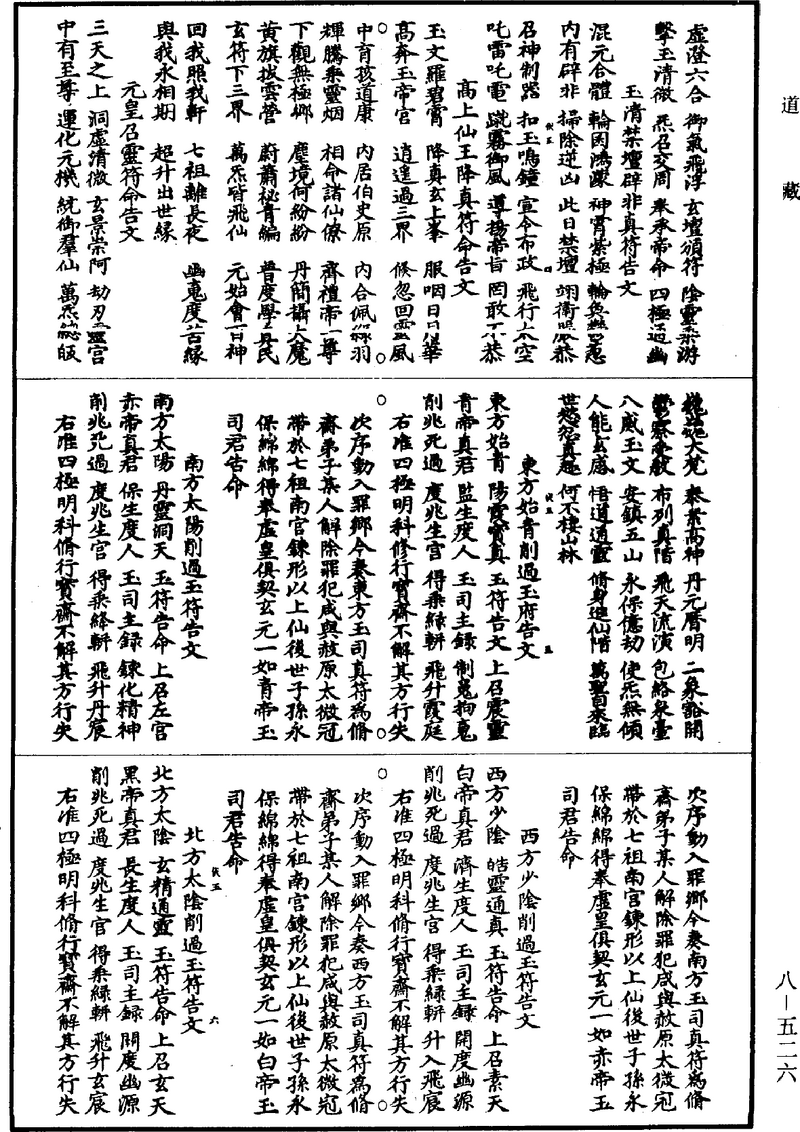 道藏
虛澄六合 御氣飛浮 玄壇頒符 陰靈業游
擊玉清微 炁召交周 奉承帝命 四極通幽
玉清禁壇辟非真符告文
混元合體 輪囷鴻濛 神霄紫極
內有辟非 掃除逆凶 此日禁壇 翊衛
召神制器 扣玉鳴鐘 宣令布政 飛行太空
吒雷吒電 蹴霧御風 導揚帝旨 罔敢不恭
高上仙王降真符命告文
玉文羅碧霄 降真玄上峯 服咽日月華
高奔玉帝宮 逍遙過三界 倏忽回靈風
中育孩道康 內居伯史原 內合佩綠羽
輝騰乘靈烟 相命諸仙僚 齊禮帝一尊
下觀無極鄉 塵境何紛紛 丹簡攝大魔
黃旗拔雲營 蔚蕭秘青編 普度學真民
玄符下三界 萬炁皆飛仙 元始會百神
回我照我軒 七祖離長夜 幽魂度苦緣
與我永相期 超升出世緣
元皇召靈符命告文
三天之上 洞虛清微 玄景崇阿 劫刃靈宮
中有至尊 運化元機 統御羣仙 萬炁總皈
大梵 泰素高神 丹元曆明 二象豁開
布列真階 飛天流演 包絡衆臺
八威玉文 安鎮五山 永保億劫 使炁無傾
人能玄感 悟道通靈 脩身進仙階 萬聖自來臨
何不棲山林
東方始青削過玉府告文
東方始青 陽霞寶真 玉符告文 上召震靈
青帝真君 監生度人 玉司主錄 制魂拘魂
削兆死過 度兆生官 得乘綠軿 飛升霞庭
右准四極明科修行寶齋不解其方行失
次序動入罪鄉今奏東方玉司真符爲脩
齋弟子某人解除罪犯咸與赦原太微冠
帶於七祖南宮鍊形以上仙後世子孫永
保綿綿得奉虛皇俱契玄元一如青帝玉
司君告命
南方太陽削過玉符告文
南方太陽 丹靈洞天 玉符告命 上召左官
赤帝真君 保生度人 玉司主錄 鍊化精神
削兆死過 度兆生官 得乘絳軿 飛升丹宸
右准四極明科脩行寶齋不解其方行失
次序動入罪鄉今奏南方玉司真符爲脩
齋弟子某人解除罪犯咸與赦原太微冠
帶於七祖南宮鍊形以上仙後世子孫永
保綿綿得奉虛皇俱契玄元一如赤帝玉
司君告命
西方少陰削過玉符告文
西方少陰 皓靈通真 玉符告命 上召素天
白帝真君 濟生度人 玉司主錄 開度幽源
削兆死過 度兆生官 得乘綠軿 升入飛宸
右准四極明科脩行寶齋不解其方行失
次序動入罪鄉今奏西方玉司真符爲脩
齋弟子某人解除罪犯咸與赦原太微冠
帶於七祖南宮鍊形以上仙後世子孫永
保綿綿得奉虛皇俱契玄元一如白帝玉
司君告命
北方太陰削過玉符告文
北方太陰 玄精通靈 玉符告命 上召玄天
黑帝真君 長生度人 玉司主錄 開度幽源
削兆死過 度兆生官 得乘綠軿 飛升玄宸
右准四極明科脩行寶齋不解其方行失
八—五二六